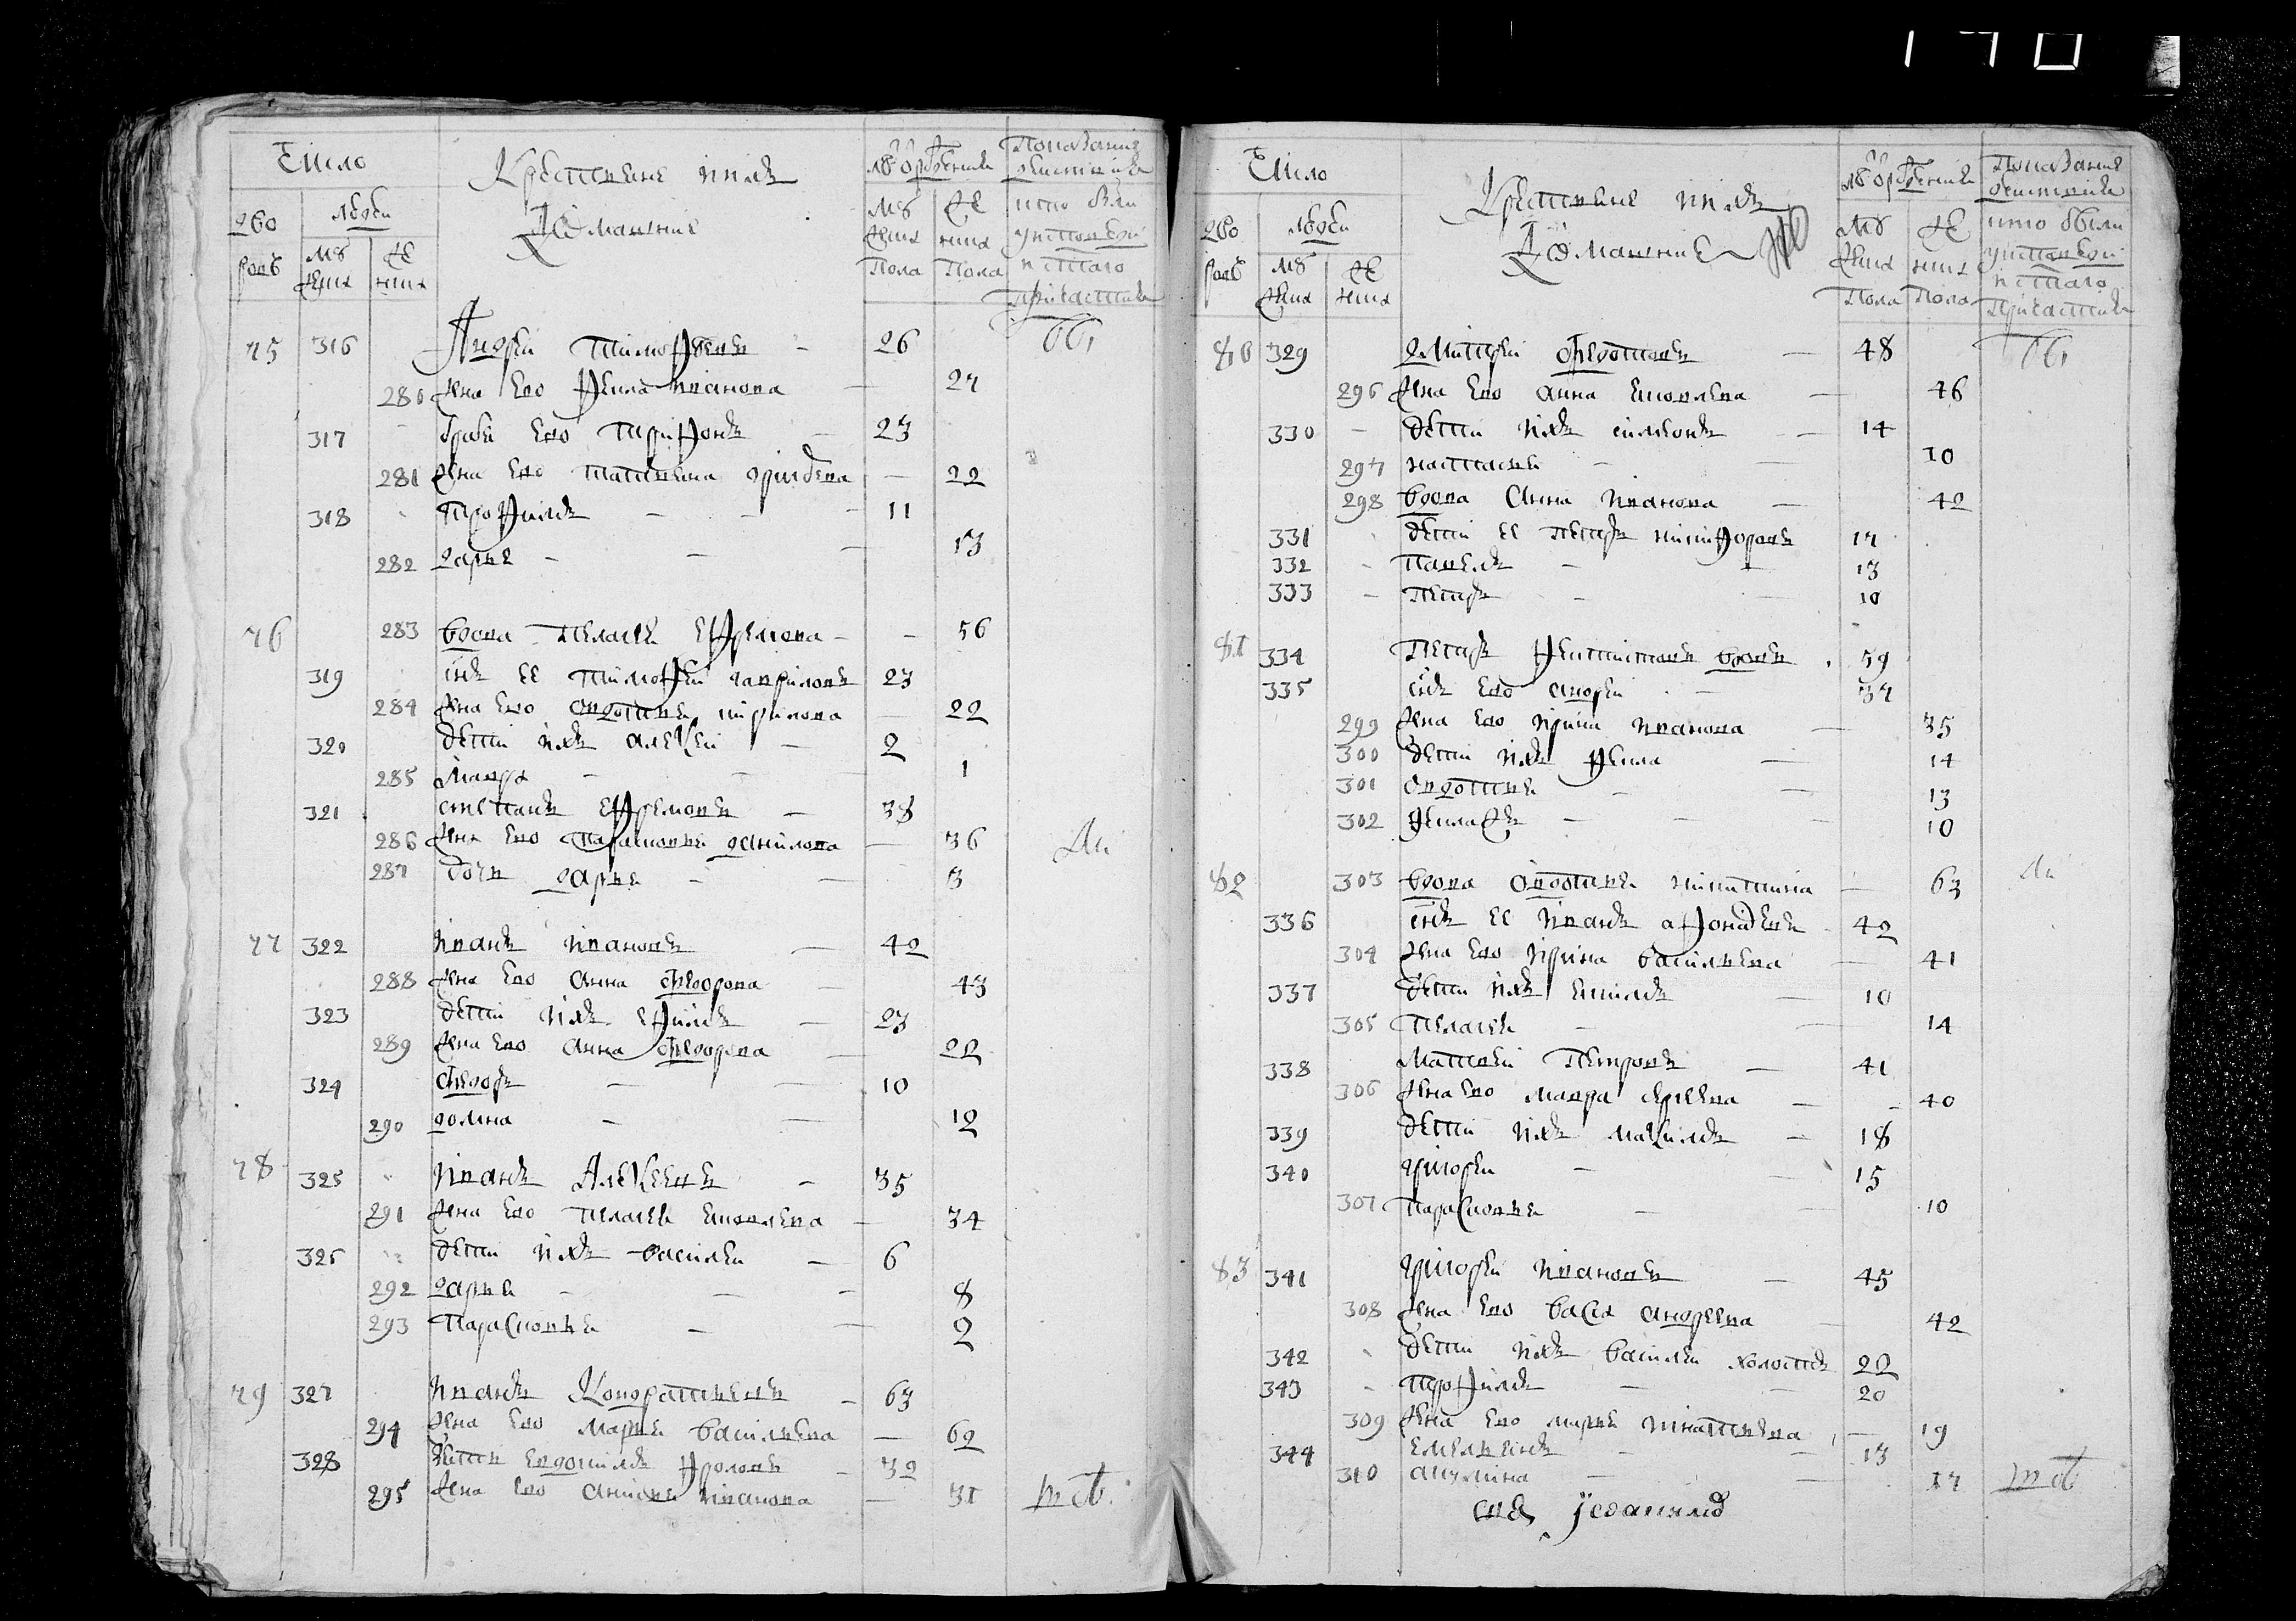 140
Число
дво ровъ
людеи
му жеска
же нска
Крестьяне и ихъ
Домашние
Лѣ от рожденія
му жеска пола
же нска пола
Показание действа кто были у исповеди и святаго причастия
75 316 Андреи Тимофеевъ - 26 бы
280 жена ево Фекла иванова - 27
317 братъ ево Трифонъ - 23
281 жена ево татьяна - 22
318 Трофимъ - - - 11
282 дарья - - - 13
76 283 вдова Пелагея Ефремова - - 56
319 снъ ее тимофеи гавриловъ 23
284 жена ево авдотья кирилова - 22
320 дети ихъ алексеи - 2
285 Мавра - - - 1
321 степанъ Ефремовъ - 38
286 жена ево Парасковья данилова - 36 ли
287 дочь дарья - - 3
77 322 иванъ ивановъ - 42
288 жена ево анна федорова - 43
323 дети ихъ ефимъ - 23
289 жена ево анна федорова - 22
324 федоръ - - 10
290 домна - - 12
78 325 иванъ Алексеевъ - 35
291 жена ево пелагея яковлева - 34
325 дети ихъ василеи - 6
292 дарья - - - 8
293 Парасковья - - 2
79 327 иванъ Кондратьевъ - 63
294 жена ево Марья васильева - 62
328 зять евдокимъ фроловъ - 32
295 жена ево иванова - 31
Число
дво ровъ
людеи
му жеска
же нска
Крестьяне и ихъ
Домашние
Лѣ от рожденія
му жеска Пола
же нска Пола
Показание действа кто были у исповеди и святаго Причастия
80 329 дмитреи федотовъ - 48 бы
296 жена ево анна яковлева - 46
330 - дети ихъ симеонъ - 14
297 настасья - - 10
298 вдова Анна иванова - 42
331 дети ее петръ никифоровъ 17
332 - Павелъ - - 13
333 - Петръ - - 10
81 334 Петръ феиктистовъ вдовъ 59
335 снъ ево андреи - 37
299 жена ево ирина иванова - 35
300 дети ихъ фекла - 14
301 авдотья - - 13
302 - - - 10
82 303 вдова авдотья никитина - 63 ли
336 снъ ее иванъ афонасьевъ 42
304 жена ево ирина васильева - 41
337 дети ихъ - 10
305 пелагея - - 14
338 Матвеи Петровъ - 41
306 жена ево мавра сергеева - 40
339 дети ихъ максимъ - 18
340 григореи - - 15
307 Парасковья - - 10
83 341 григореи ивановъ - 45
308 жена ево васса андреева - 42
342 дети ихъ василеи холостъ 22
343 - трофимъ - - 20
309 жена ево марья игнатьева - 19
344 емельянъ - - 13
310 акулина - - 17